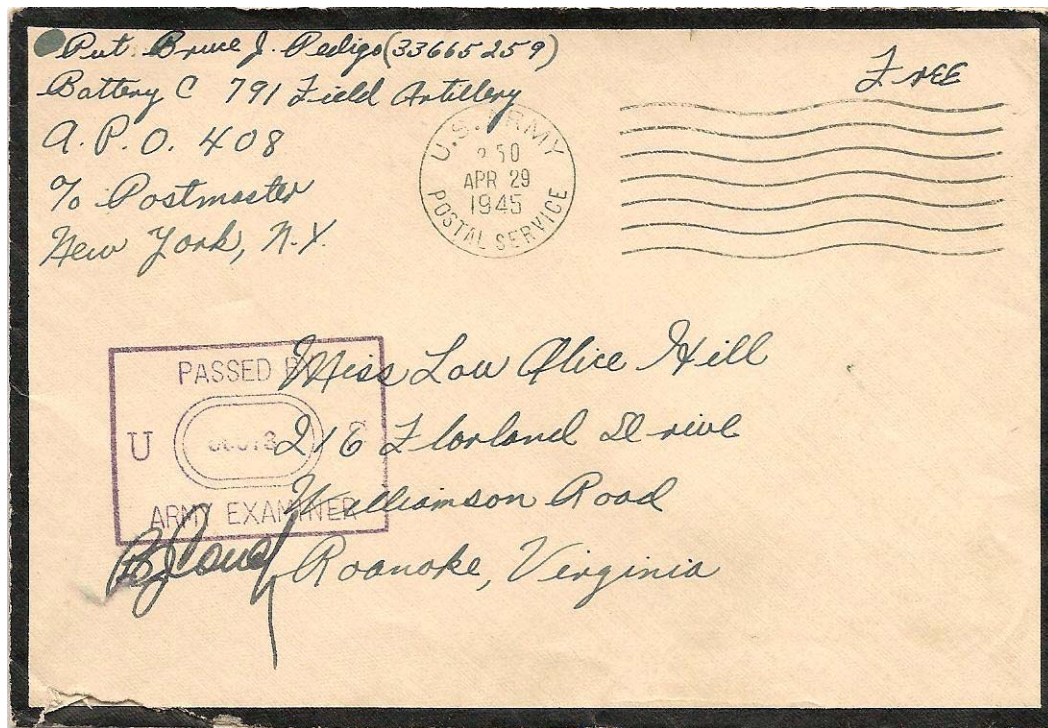 Pvt. Bruce J. Pedigo (33665259)
Battery C 791 Field Artillery
A. P. O. 408
c/o Postmaster
New York, N.Y.
Free
U.S. ARMY
50
APR 29
1945
POSTAL SERVICE
PASSED BY
U S
ARMY EXAMINER
Miss Lou Alice Hill
216 Florland Drive
Williamson Road
Roanoke, Virginia